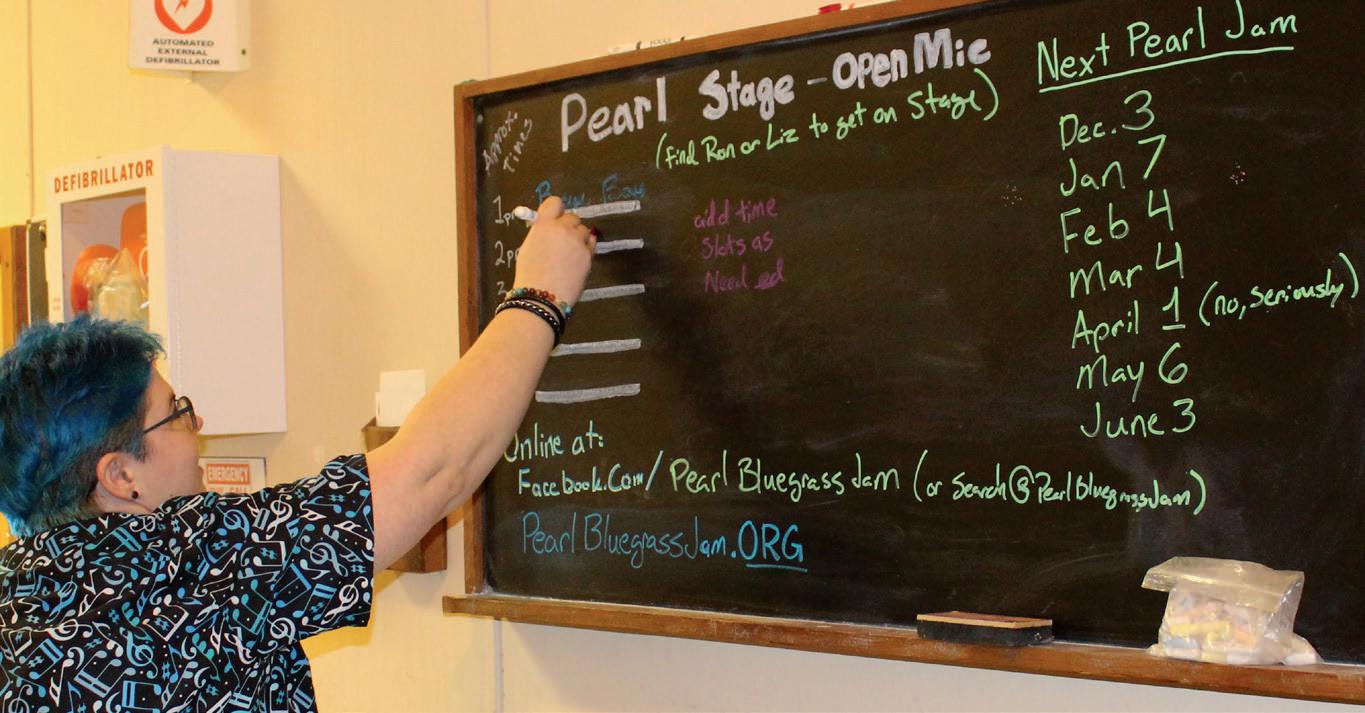 AUTOMATED
EXTERNAL
DEFIBRILLATOR
DEFIBRILLATOR
EMERGENCY
Pearl Stage - Open Mic
(find Ron or Liz to get on Stage)
Approx.
Times
1pm
2pm
3
add time
Slots as
Needed
Next Pearl Jam
Dec. 3
Jan 7
Feb 4
Mar 4
April 1 (no, seriously)
May 6
June 3
Online at:
Facebook.Com/PearlBluegrassJam (or Search @PearlBluegrassJam)
PearlBluegrassJam.ORG